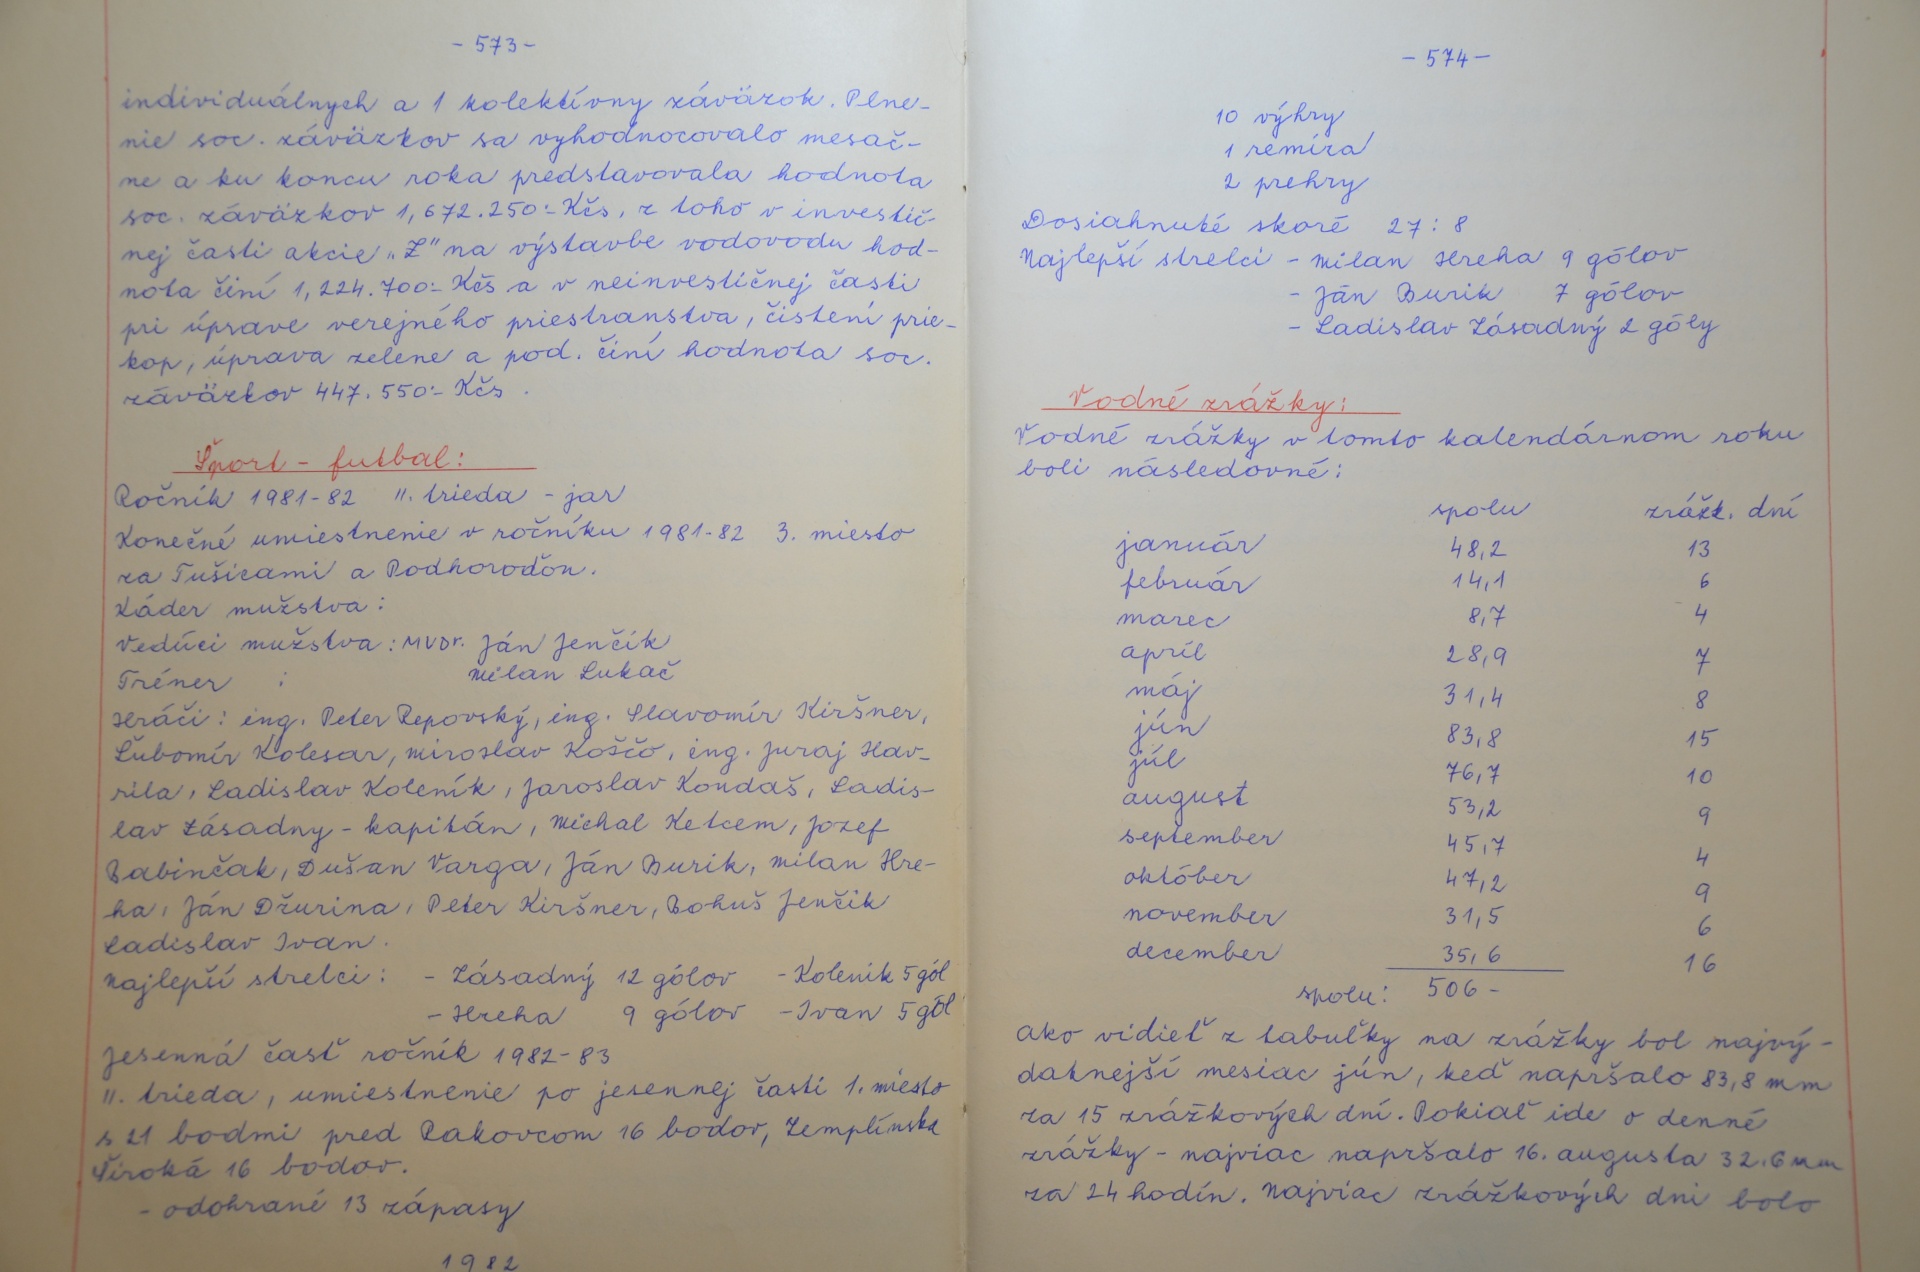 - 573 -
individuálnych a 1 kolektívny záväzok. Plne-
nie soc. záväzkov sa vyhodnocovalo mesač-
ne a ku koncu roka predstavovala hodnota
soc. záväzkov 1,672.250.- Kčs, z toho v investič-
nej časti akcie „Z" na výstavbe vodovodu hod-
nota činí 1,224.700.- Kčs a v neinvestičnej časti
pri úprave verejného priestranstva, čistení prie-
kop, úprava zelene a pod. činí hodnota soc.
záväzkov 447.550.- Kčs.
Šport - futbal:
Ročník 1981-82 II. trieda - jar
Konečné umiestnenie v ročníku 1981-82 3. miesto
za Tušicami a Podhoroďou.
Káder mužstva:
Vedúci mužstva: MVDr. Ján Jenčík
Tréner : Milan Lukáč
Hráči: ing. Peter Repovský, ing. Slavomír Kiršner,
Ľubomír Kolesar, Miroslav Koščo, ing. Juraj Hav-
rila, Ladislav Koleník, Jaroslav Kondaš, Ladis-
lav Zásadny - kapitán, Michal Ketcem, Jozef
Babinčak, Dušan Varga, Ján Burik, Milan Hre-
ha, Ján Džurina, Peter Kiršner, Bohuš Jenčik
Ladislav Ivan.
Najlepší strelci: - Zásadný 12 gólov - Koleník 5 gól
- Hreha 9 gólov - Ivan 5 gól
Jesenná časť ročník 1982-83
II. trieda, umiestnenie po jesennej časti 1. miesto
s 21 bodmi pred Rakovcom 16 bodov, Zemplínska
Široká 16 bodov.
- odohrané 13 zápasy
1982
- 574 -
10 výhry
1 remíza
2 prehry
Dosiahnuté skoré 27 : 8
Najlepší strelci - Milan Hreha 9 gólov
- Ján Burik 7 gólov
- Ladislav Zásadný 2 góly
Vodné zrážky:
Vodné zrážky v tomto kalendárnom roku
boli následovné:
spolu zrážk. dní
január 48,2 13
február 14,1 6
marec 8,7 4
apríl 28,9 7
máj 31,4 8
jún 83,8 15
júl 76,7 10
august 53,2 9
september 45,7 4
október 47,2 9
november 31,5 6
december 35,6 16
spolu: 506 -
Ako vidieť z tabuľky na zrážky bol najvý-
datnejší mesiac jún, keď napršalo 83,8 mm
za 15 zrážkových dní. Pokiaľ ide o denné
zrážky - najviac napršalo 16. augusta 32.6 mm
za 24 hodín. Najviac zrážkových dni bolo